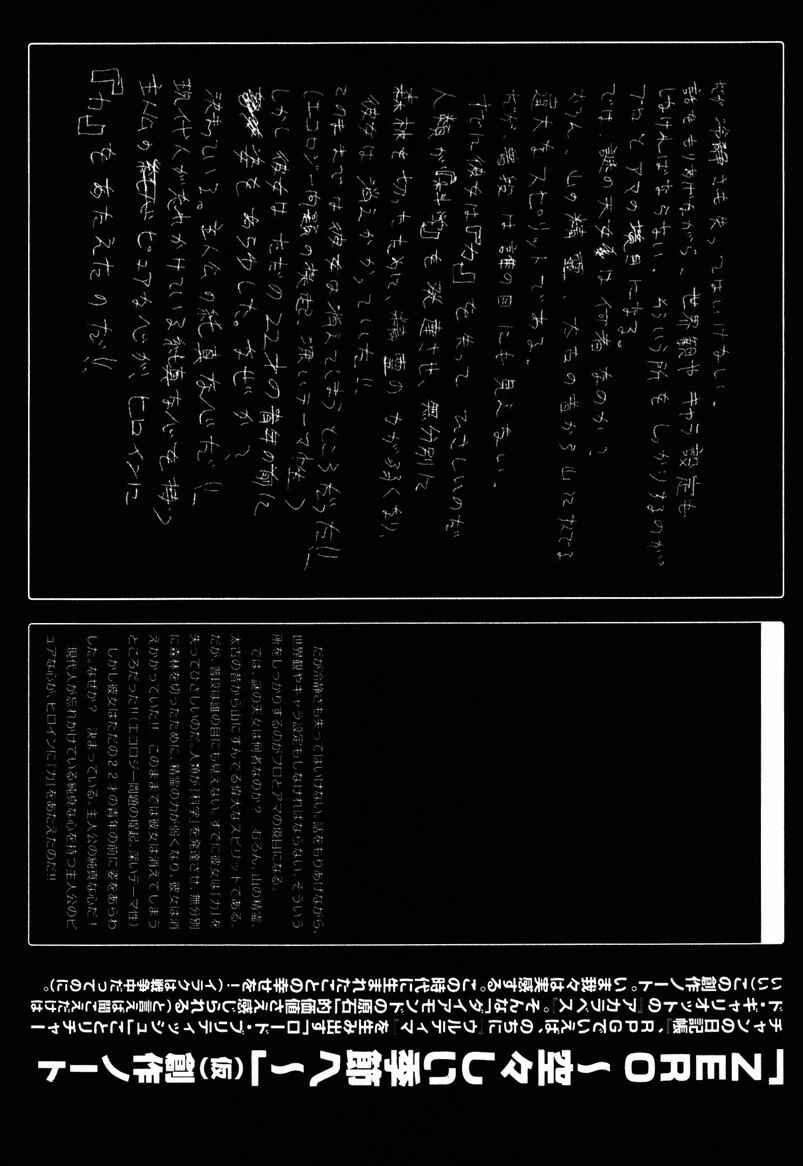 「ZERO ～空々しい季節へ～」(仮)創作ノート
チャンの日記帳、RPGでいえば、のちに『ウルティマ』を生み出す「ロード・ブリティッシュ」ことリチャー
ド・ギャリオットの『アカラベス』。そんな“ダイアモンドの原石”的価値さえ感じられる(と言えば聞こえだけは
いい)この創作ノート。いま我々は実感する。この時代に生まれたことの幸せを！(イラクは戦争中だってのに)。
だが冷静さも失ってはいけない。
話をもりあげながら、世界観やキャラ設定も
しなければならない。そういう所をしっかりするのが
プロとアマの境目になる。
では、謎の天女は何者なのか？
むろん、山の精霊、太古の昔から山にすんでる
偉大なスピリットである。
だが、普段は誰の目にも見えない。
すでに彼女は『力』を失ってひさしいのだ
人類が『科学』を発達させ、無分別に
森林を切ったために、精霊の力が弱くなり、
彼女は消えかかっていた!!
このままでは彼女は消えてしまうところだった!!
(エコロジー問題の提起、深いテーマ性)
しかし彼女はただの22才の青年の前に
姿をあらわした。なぜか？
決まっている。主人公の純真な心だ!!
現代人が忘れかけている純真な心を持つ
主人公のピュアな心が、ヒロインに
『力』をあたえたのだ!!
だが冷静さも失ってはいけない。話をもりあげながら、
世界観やキャラ設定もしなければならない。そういう
所をしっかりするのがプロとアマの境目になる。
では、謎の天女は何者なのか？ むろん、山の精霊、
太古の昔から山にすんでる偉大なスピリットである。
だが、普段は誰の目にも見えない。すでに彼女は「力」を
失ってひさしいのだ。人類が「科学」を発達させ、無分別
に森林を切ったために、精霊の力が弱くなり、彼女は消
えかかっていた!! このままでは彼女は消えてしまう
ところだった!!(エコロジー問題の提起、深いテーマ性)
しかし彼女はただの22才の青年の前に姿をあらわ
した。なぜか？ 決まっている。主人公の純真な心だ！
現代人が忘れかけている純真な心を持つ主人公のピ
ュアな心が、ヒロインに「力」をあたえたのだ!!